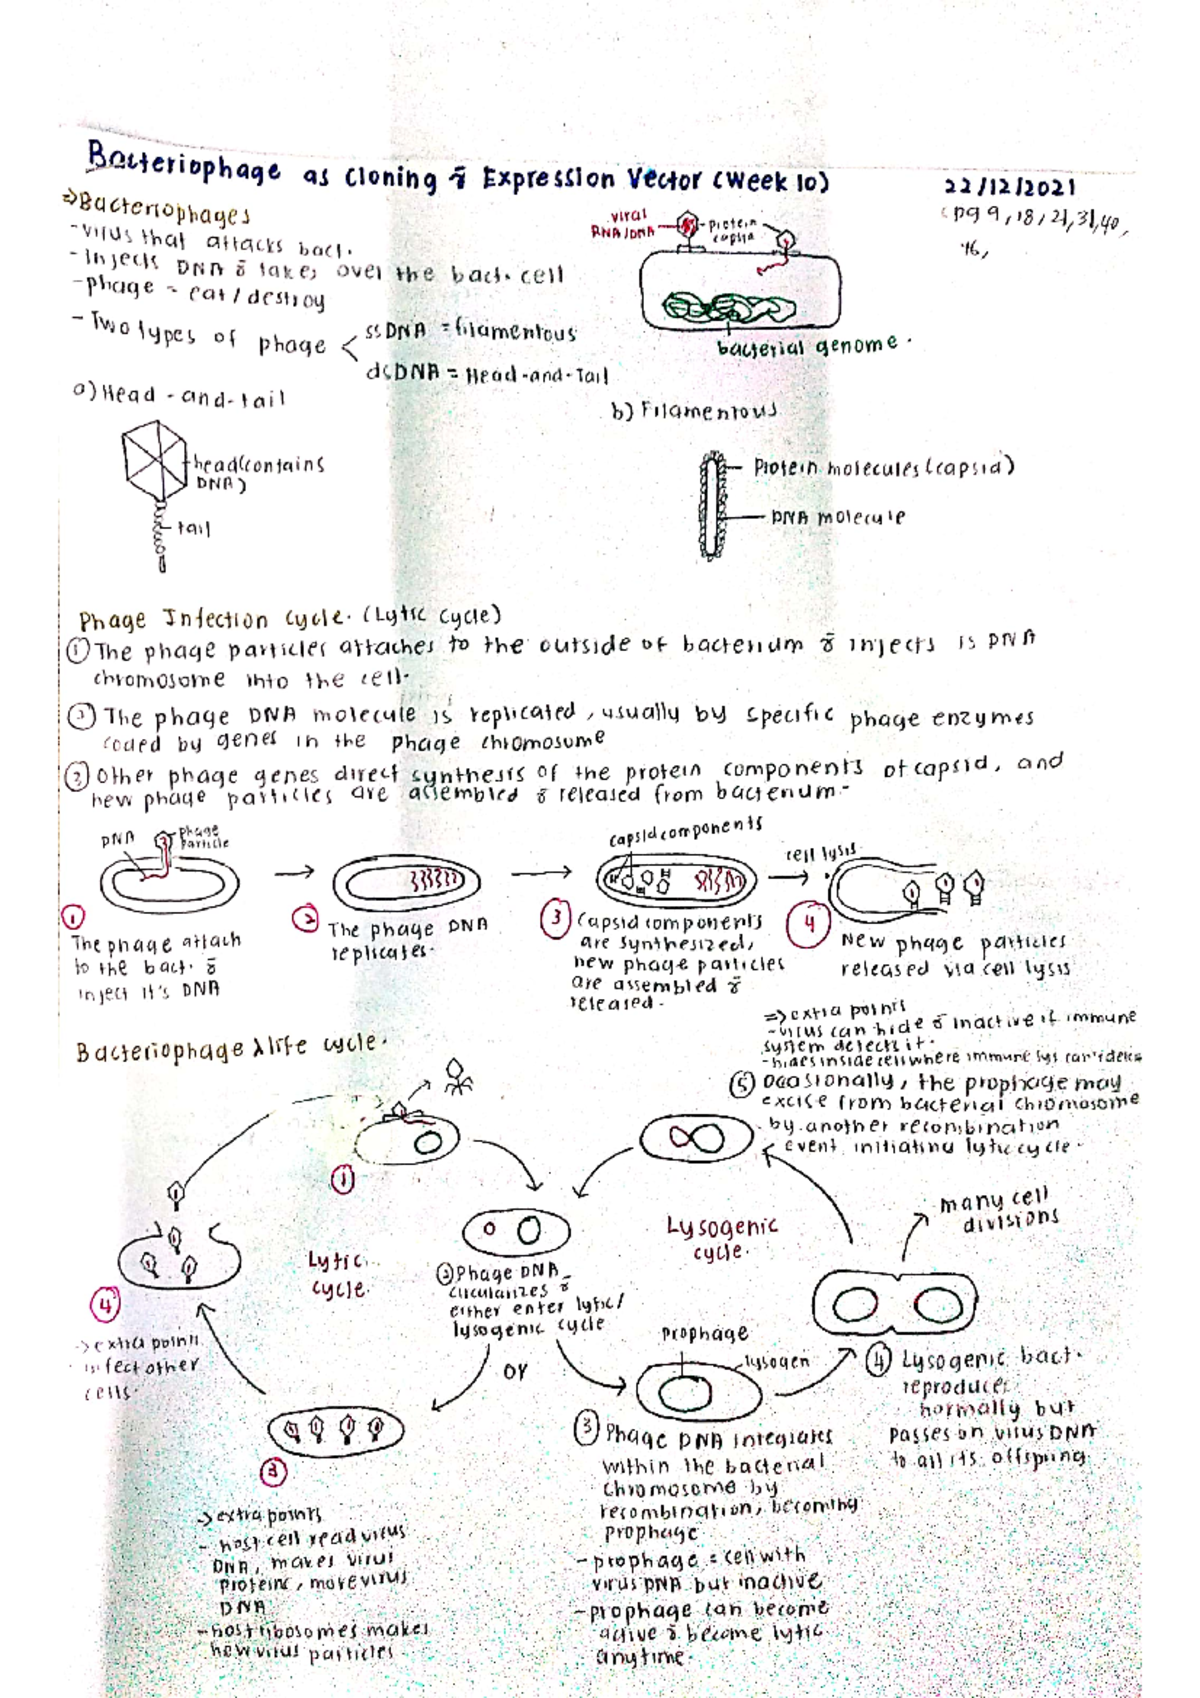 Bacteriophage as cloning & Expression Vector (Week 10)
22/12/2021
(pg 9, 18, 21, 31, 40,
46,
⇒Bacteriophages
-virus that attacks bact.
-Injects DNA & takes over the bact. cell
-phage = eat/destroy
-Two types of phage < ssDNA = filamentous
dsDNA = Head-and-Tail
viral
RNA/DNA
protein
capsid
bacterial genome.
a) Head-and-tail
head(contains
DNA)
tail
b) Filamentous
Protein molecules (capsid)
DNA molecule
Phage Infection cycle. (Lytic cycle)
① The phage particles attaches to the outside of bacterium & injects is DNA
chromosome into the cell.
② The phage DNA molecule is replicated, usually by specific phage enzymes
coded by genes in the phage chromosome
③ Other phage genes direct synthesis of the protein components of capsid, and
new phage particles are assembled & released from bacterium.
DNA
phage
particle
capsid components
cell lysis
①
The phage attach
to the bact. &
inject it's DNA
②
The phage DNA
replicates.
③ Capsid components
are synthesized,
new phage particles
are assembled &
released.
④
New phage particles
released via cell lysis
Bacteriophage λ life cycle.
⇒extra points
-virus can hide & inactive if immune
system detects it.
-hides inside cell where immune sys can't detect
⑤ Ocasionally, the prophage may
excise from bacterial chromosome
by another recombination
event, initiating lytic cycle.
①
many cell
divisions
Lytic
cycle.
Lysogenic
cycle.
② Phage DNA
circularizes &
either enter lytic/
lysogenic cycle
or
④
->extra points
infect other
cells.
Prophage
lysogen
④ Lysogenic bact.
reproduces
normally but
passes on virus DNA
to all its offspring
③
->extra points
- host cell read virus
DNA, makes virus
proteins, more virus
DNA
-host ribosomes makes
new virus particles
③ Phage DNA integrates
within the bacterial
chromosome by
recombination, becoming
prophage
-prophage = cell with
virus DNA but inactive
-prophage can become
active & become lytic
anytime.